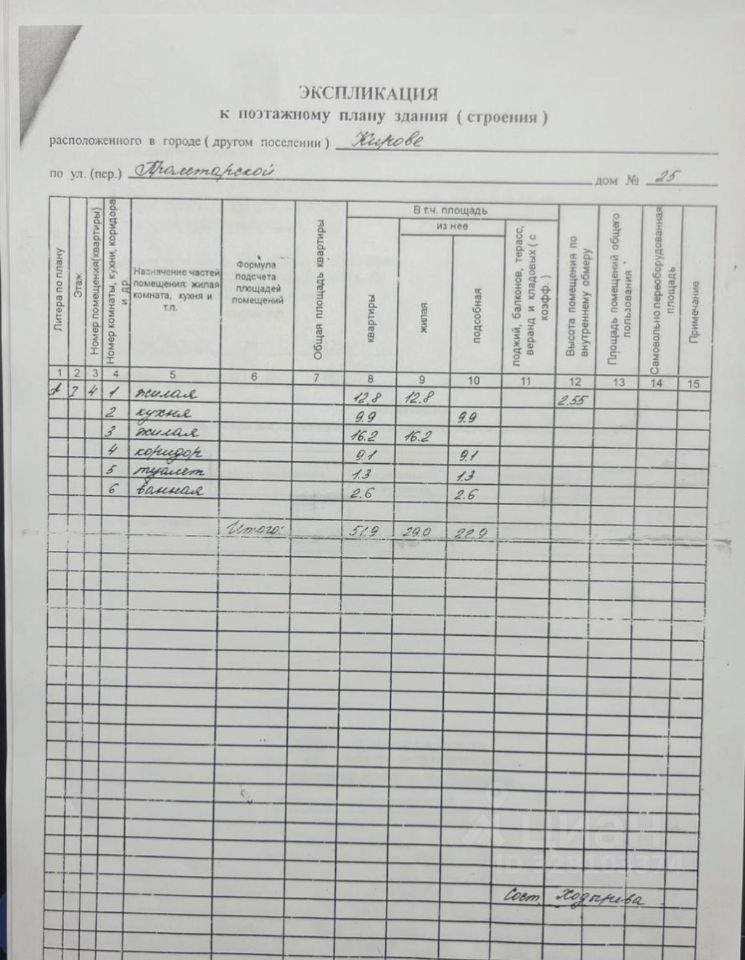 ЭКСПЛИКАЦИЯ
к поэтажному плану здания ( строения )
расположенного в городе ( другом поселении ) Кирове
по ул. (пер.) Пролетарской дом № 25
Литера по плану
Этаж
Номер помещения(квартиры)
Номер комнаты, кухни, коридора и др.
Назначение частей помещения: жилая комната, кухня и т.п.
Формула подсчета площадей помещений
Общая площадь квартиры
В т.ч. площадь
квартиры
из нее
жилая
подсобная
лоджий, балконов, терасс, веранд и кладовых ( с коэфф. )
Высота помещения по внутреннему обмеру
Площадь помещений общего пользования
Самовольно переоборудованная площадь
Примечание
1 2 3 4 5 6 7 8 9 10 11 12 13 14 15
3 4 1 жилая 12,8 12.8 2.55
2 кухня 9.9 9.9
3 жилая 16.2 16.2
4 коридор 9.1 9.1
5 туалет 1.3 1.3
6 ванная 2.6 2.6
Итого: 51.9 29.0 22.9
циан
Сост. Ходырева